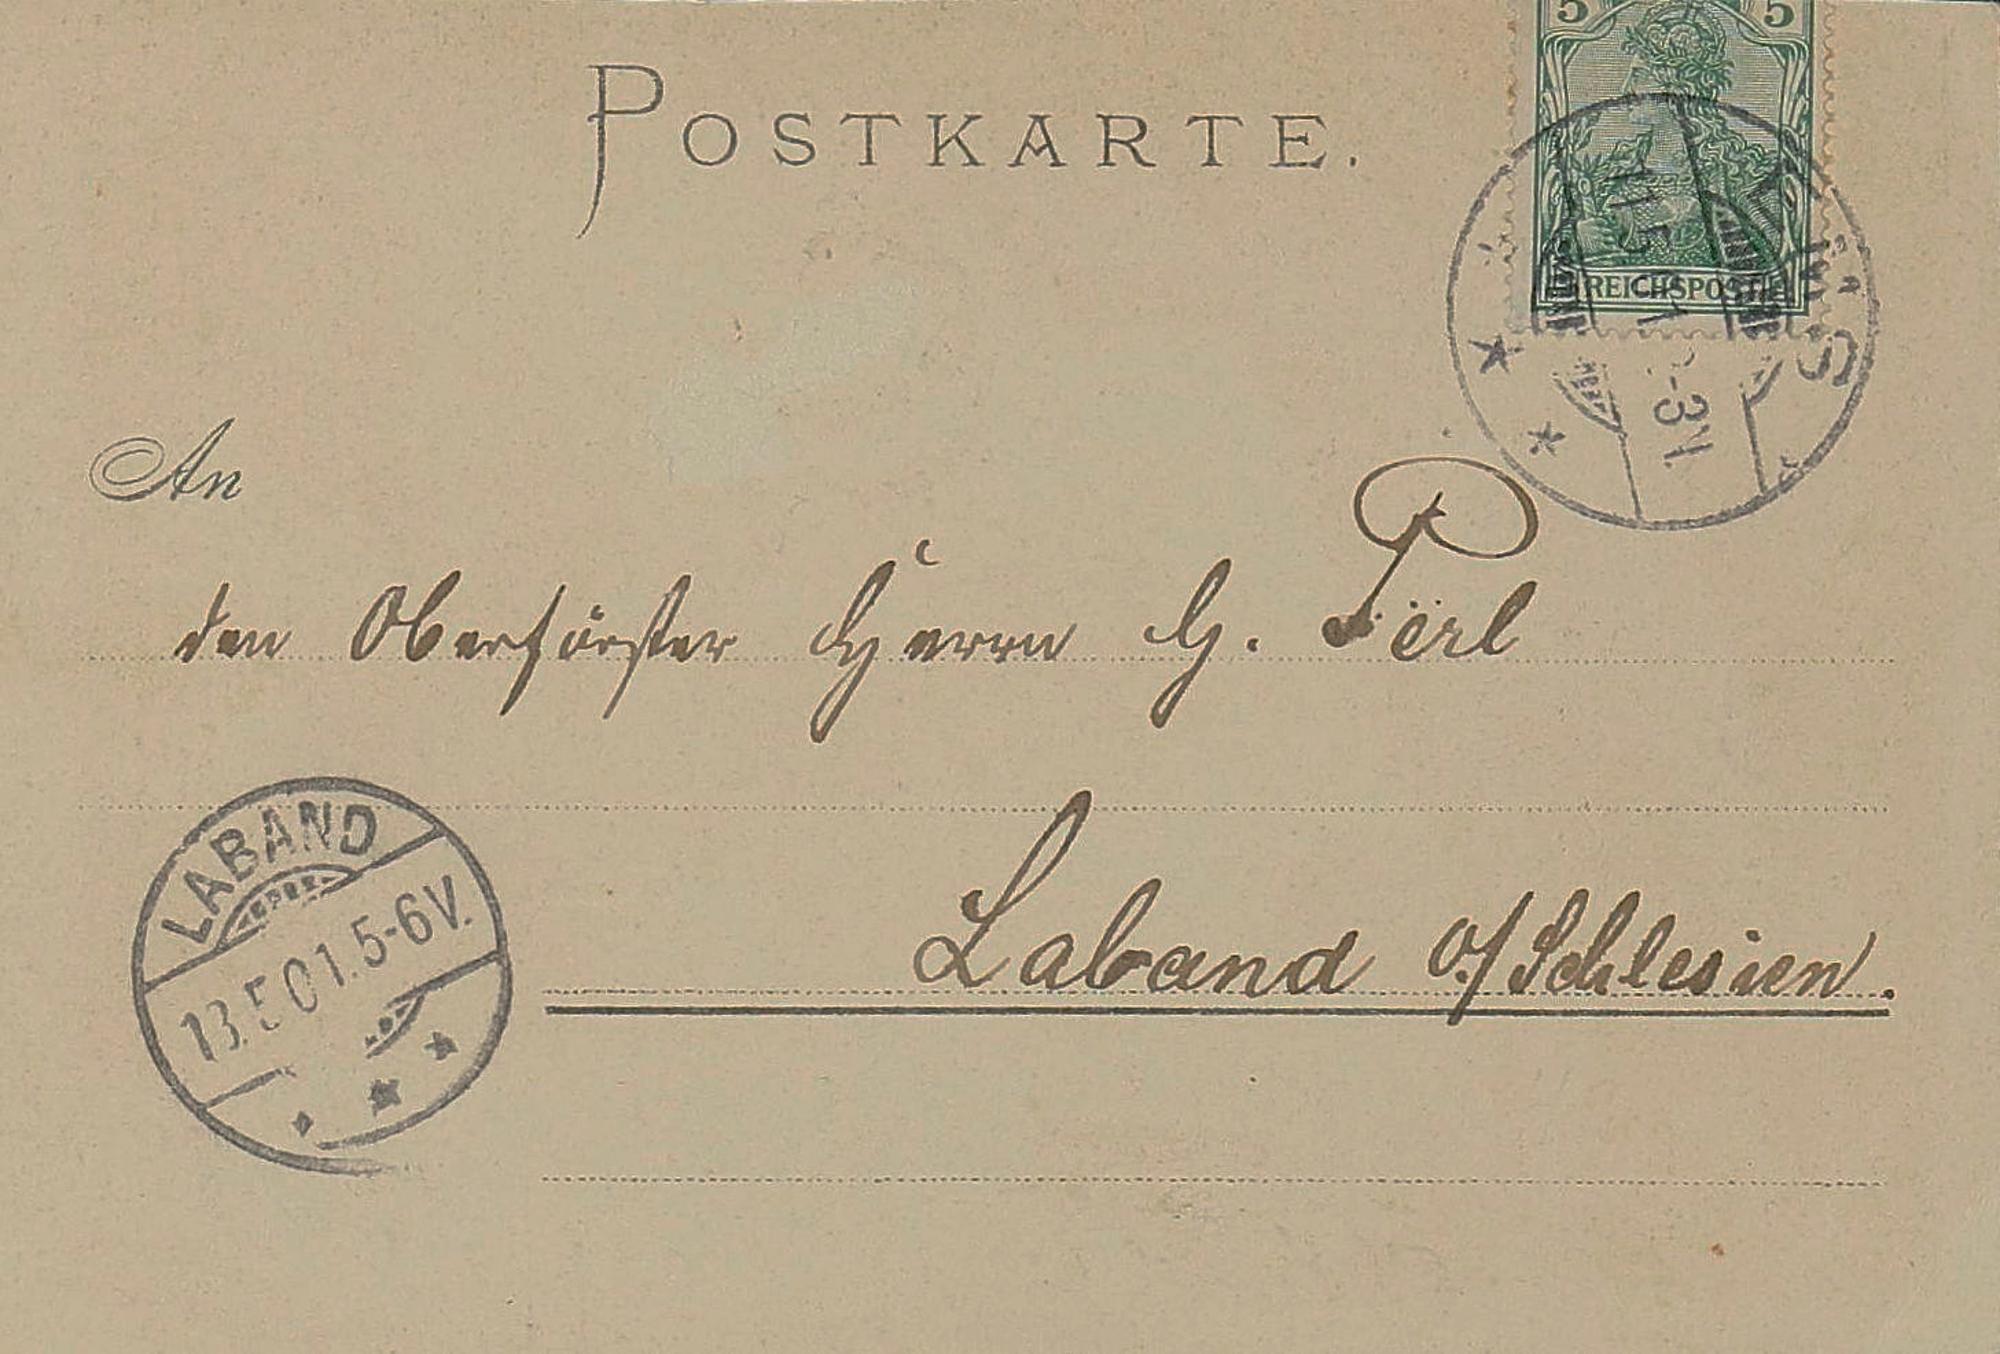 5 5
POSTKARTE.
REICHSPOST
-3V.
An
den Oberförster Herrn G. Përl
LABAND
13.5.01.5-6V.
Laband O./Schlesien.